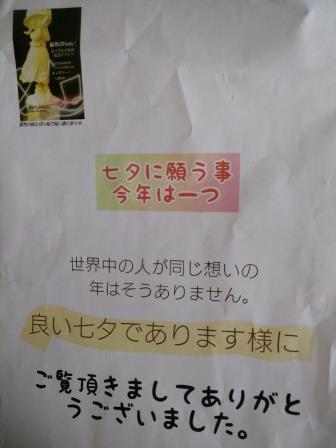 七夕に願う事
今年は一つ
世界中の人が同じ想いの
年はそうありません。
良い七夕であります様に
ご覧頂きましてありがと
うございました。